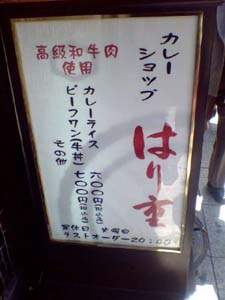 カレー
ショップ
はり重
高級和牛肉
使用
カレーライス 六〇〇円(税込)
ビーフワン(牛丼) 七〇〇円(税込)
その他
定休日 火曜日
ラストオーダー 20:00